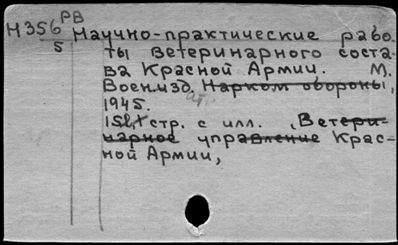 РВ
Н356 Научно-практические рабо-
5 ты ветеринарного соста-
ва Красной Армии. М.
Воен.изд. Нарком обороны,
1945.
стр. с илл. (Ветери-
нарное управление Крас-
ной Армии,